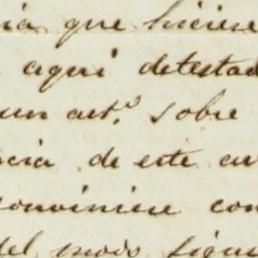 que hiciese
aqui detestad
un art.º sobre
cia de este
conviniese con
del modo sigu